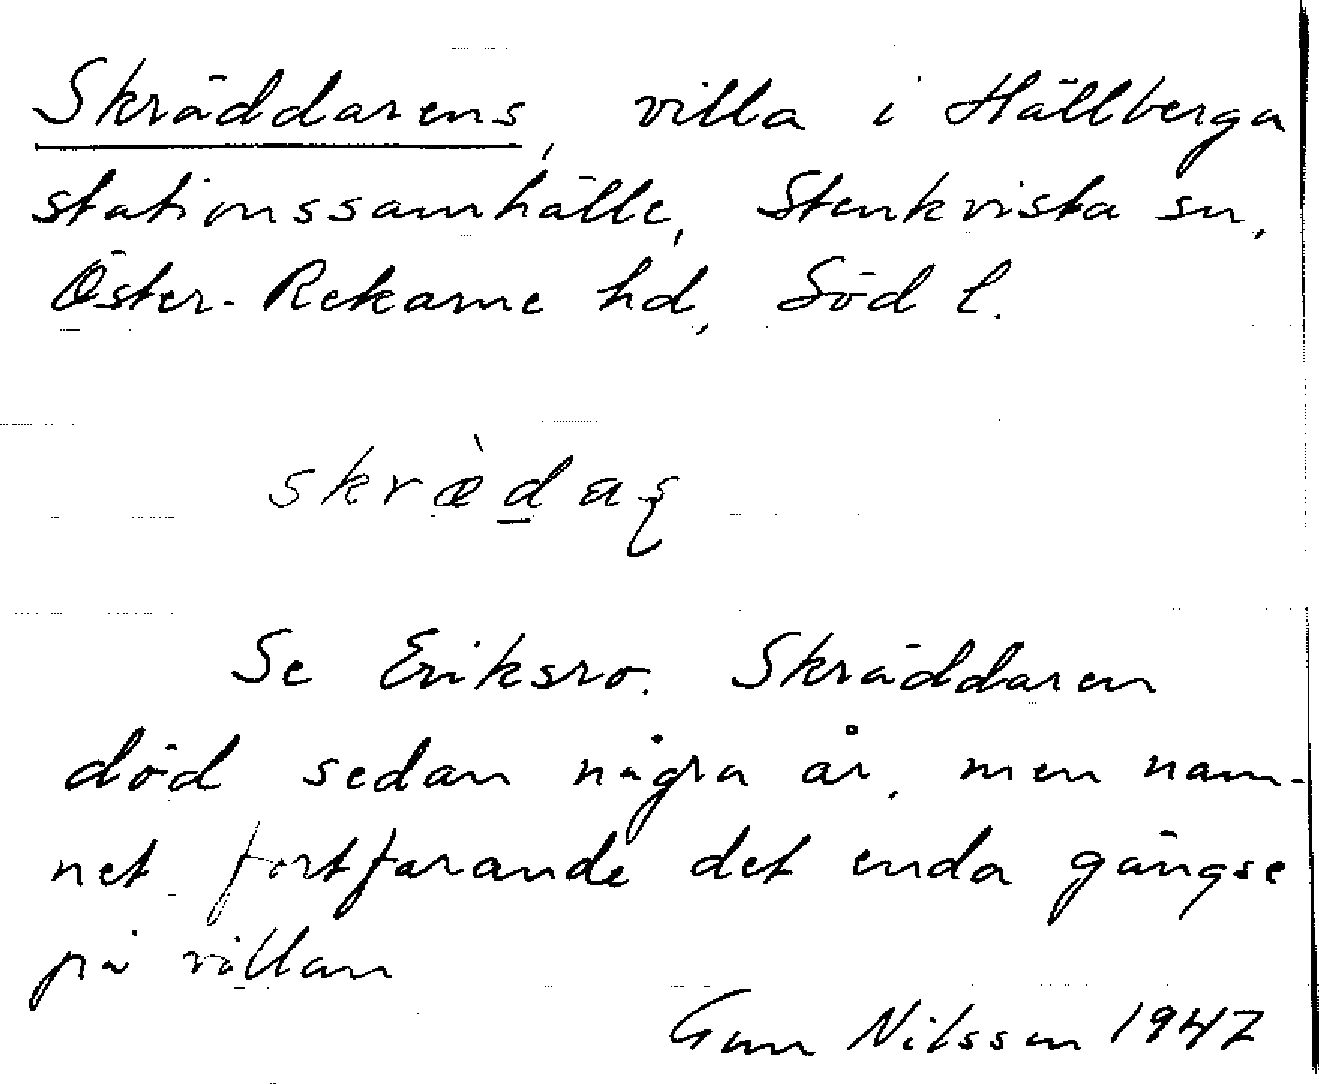 Skräddarens, villa i Hällberga
stationssamhälle, Stenkvista sn,
Öster-Rekarne hd, Söd l.
skræ̀d̲aș
Se Eriksro. Skräddaren
död sedan några år, men nam-
net fortfarande det enda gängse
på villan
Gun Nilsson 1947